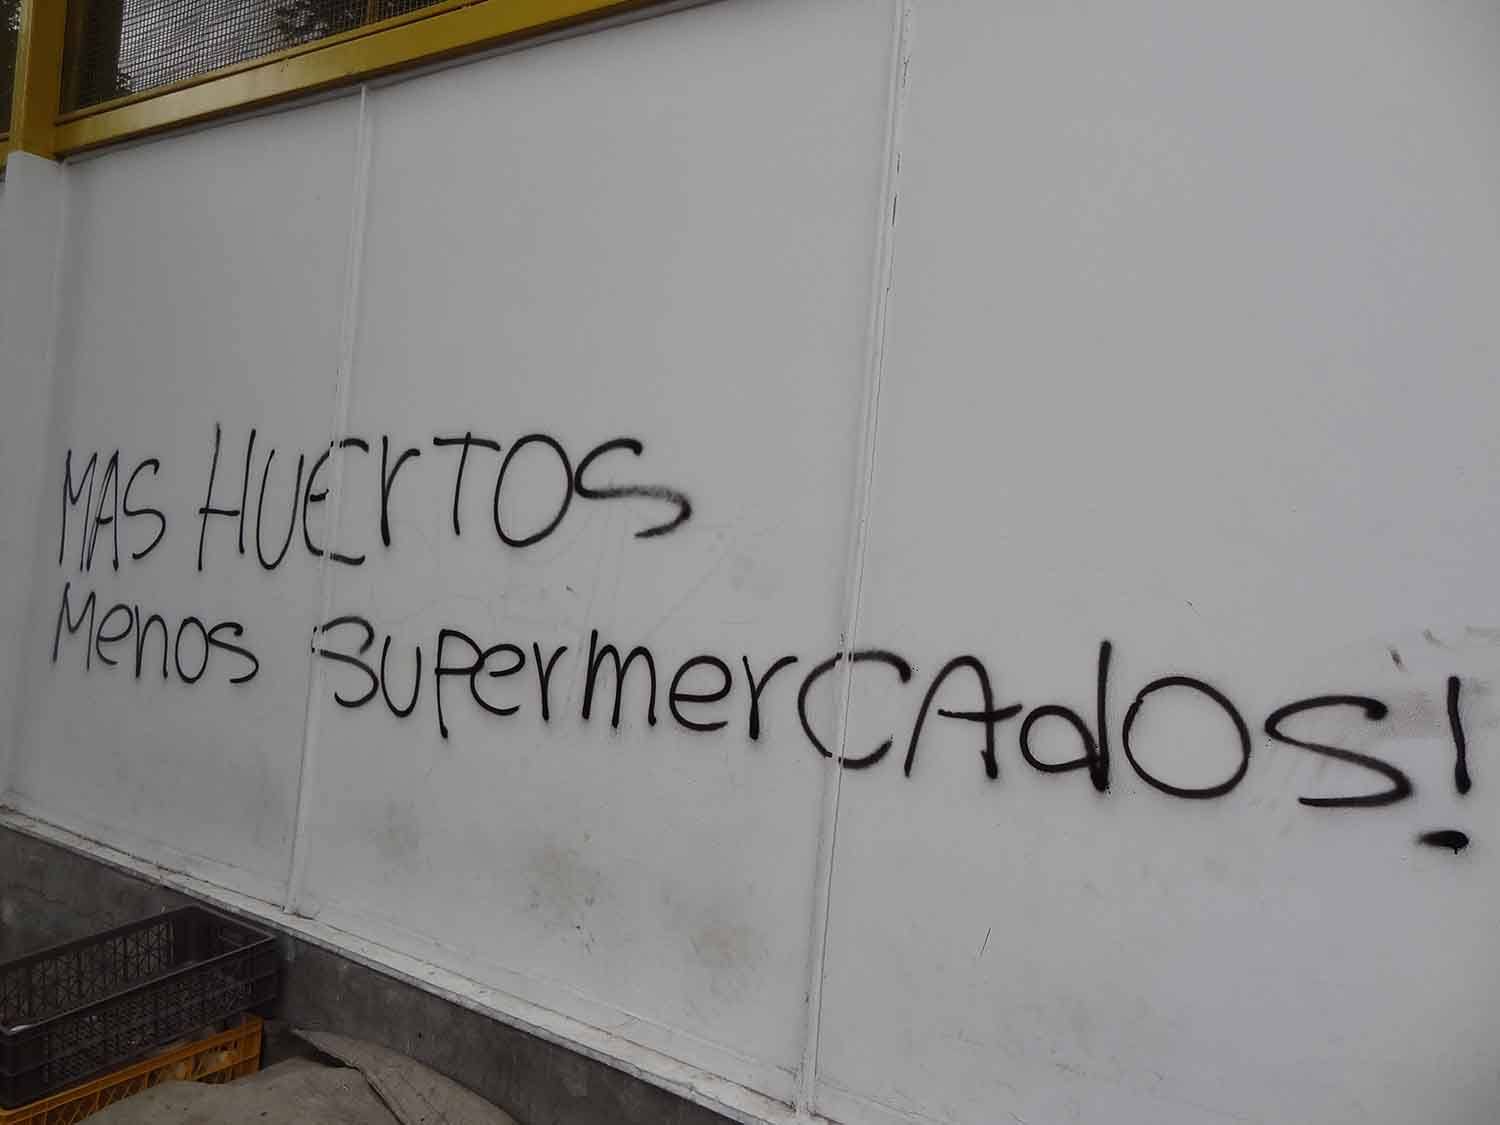 MAS HUErTOS
Menos SUPermerCAdOS!